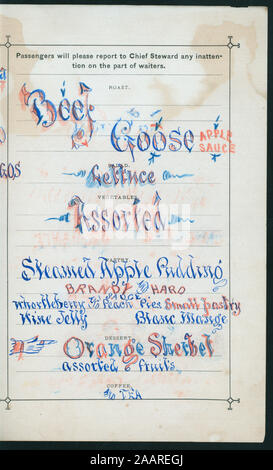 Passengers will please report to Chief Steward any inatten-
tion on the part of waiters.
ROAST.
Beef
Goose APPLE
SAUCE
Lettuce
VEGETABLES
Assorted
PASTRY.
Steamed Apple Pudding
BRANDY HARD
SAUCE
Whortleberry Peach Pies Small Pastry
Wine Jelly Blanc Mange
DESSERT
Orange Sherbet
assorted fruits
COFFEE
TEA
alamy
Image ID: 2AAREGJ
www.alamy.com